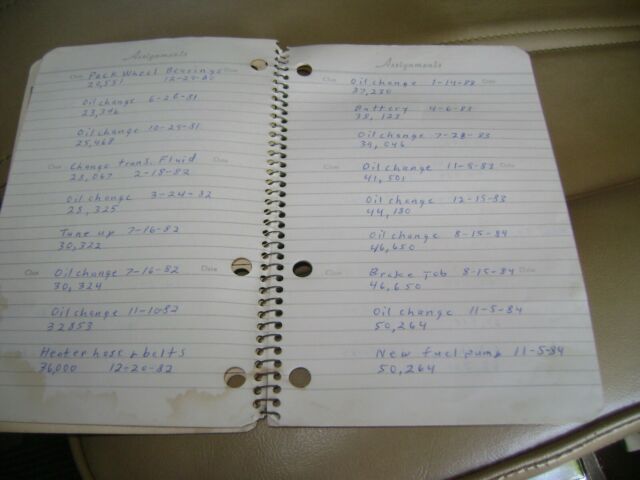 Assignments
Class Pack Wheel Bearings Date
22,551 12-20-80
Oil change 6-26-81
23,796
Oil change 10-25-81
25,468
Class Change trans. Fluid Date
28,067 2-18-82
Oil change 3-24-82
28,325
Tune up 7-16-82
30,322
Class Oil change 7-16-82 Date
30,324
Oil change 11-10-82
32853
Heater hose & belts
36,000 12-20-82
Assignments
Class Oil change 1-14-83 Date
37,230
Battery 4-6-83
38,123
Oil change 7-28-83
39,046
Class Oil change 11-5-83 Date
41,501
Oil change 12-15-83
44,180
Oil change 8-15-84
46,650
Class Brake Job 8-15-84 Date
46,650
Oil change 11-5-84
50,264
New fuel pump 11-5-84
50,264